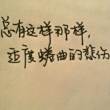 总有这样那样，
歪度蜷曲的悲伤